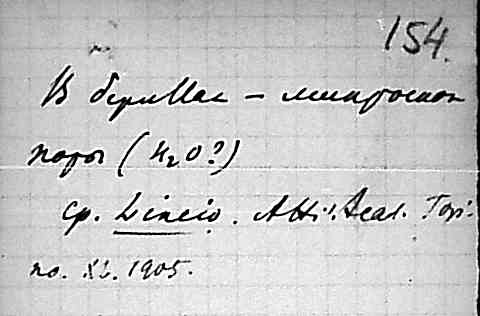 154.
В бериллах – микроскоп
поры (H₂O?)
ср. Lincio. Atti. Acad. Tori.
no. XL. 1905.